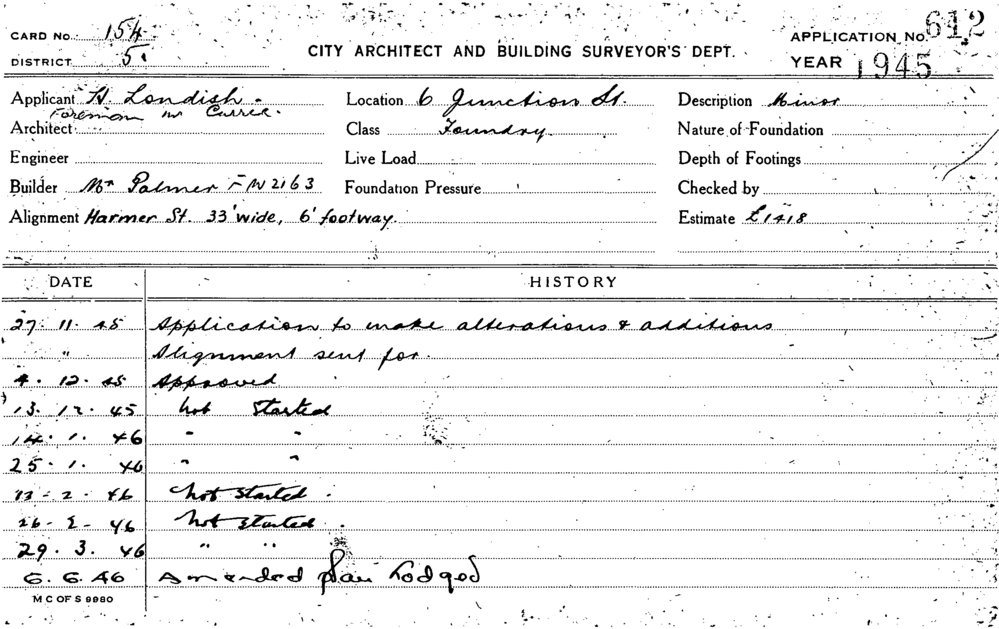 CARD No. 154
DISTRICT 5.
CITY ARCHITECT AND BUILDING SURVEYOR'S DEPT.
APPLICATION No. 612
YEAR 1945
Applicant H. Londish.
Foreman Mr
Location 6 Junction St.
Description Minor
Architect
Class Foundry.
Nature of Foundation
Engineer
Live Load
Depth of Footings
Builder Mr Palmer FW2163
Foundation Pressure
Checked by
Alignment Harmer St. 33' wide, 6' footway.
Estimate £1418
DATE HISTORY
27. 11. 45 Application to make alterations & additions
" Alignment sent for.
4. 12. 45 Approved
13. 12. 45 Not Started
14. 1. 46 " "
25. 1. 46 " "
13 - 2. 46 Not Started.
26 - 2 - 46 Not Started.
29. 3. 46 " "
6. 6. 46 Amended plan Lodged
M C OF S 9980